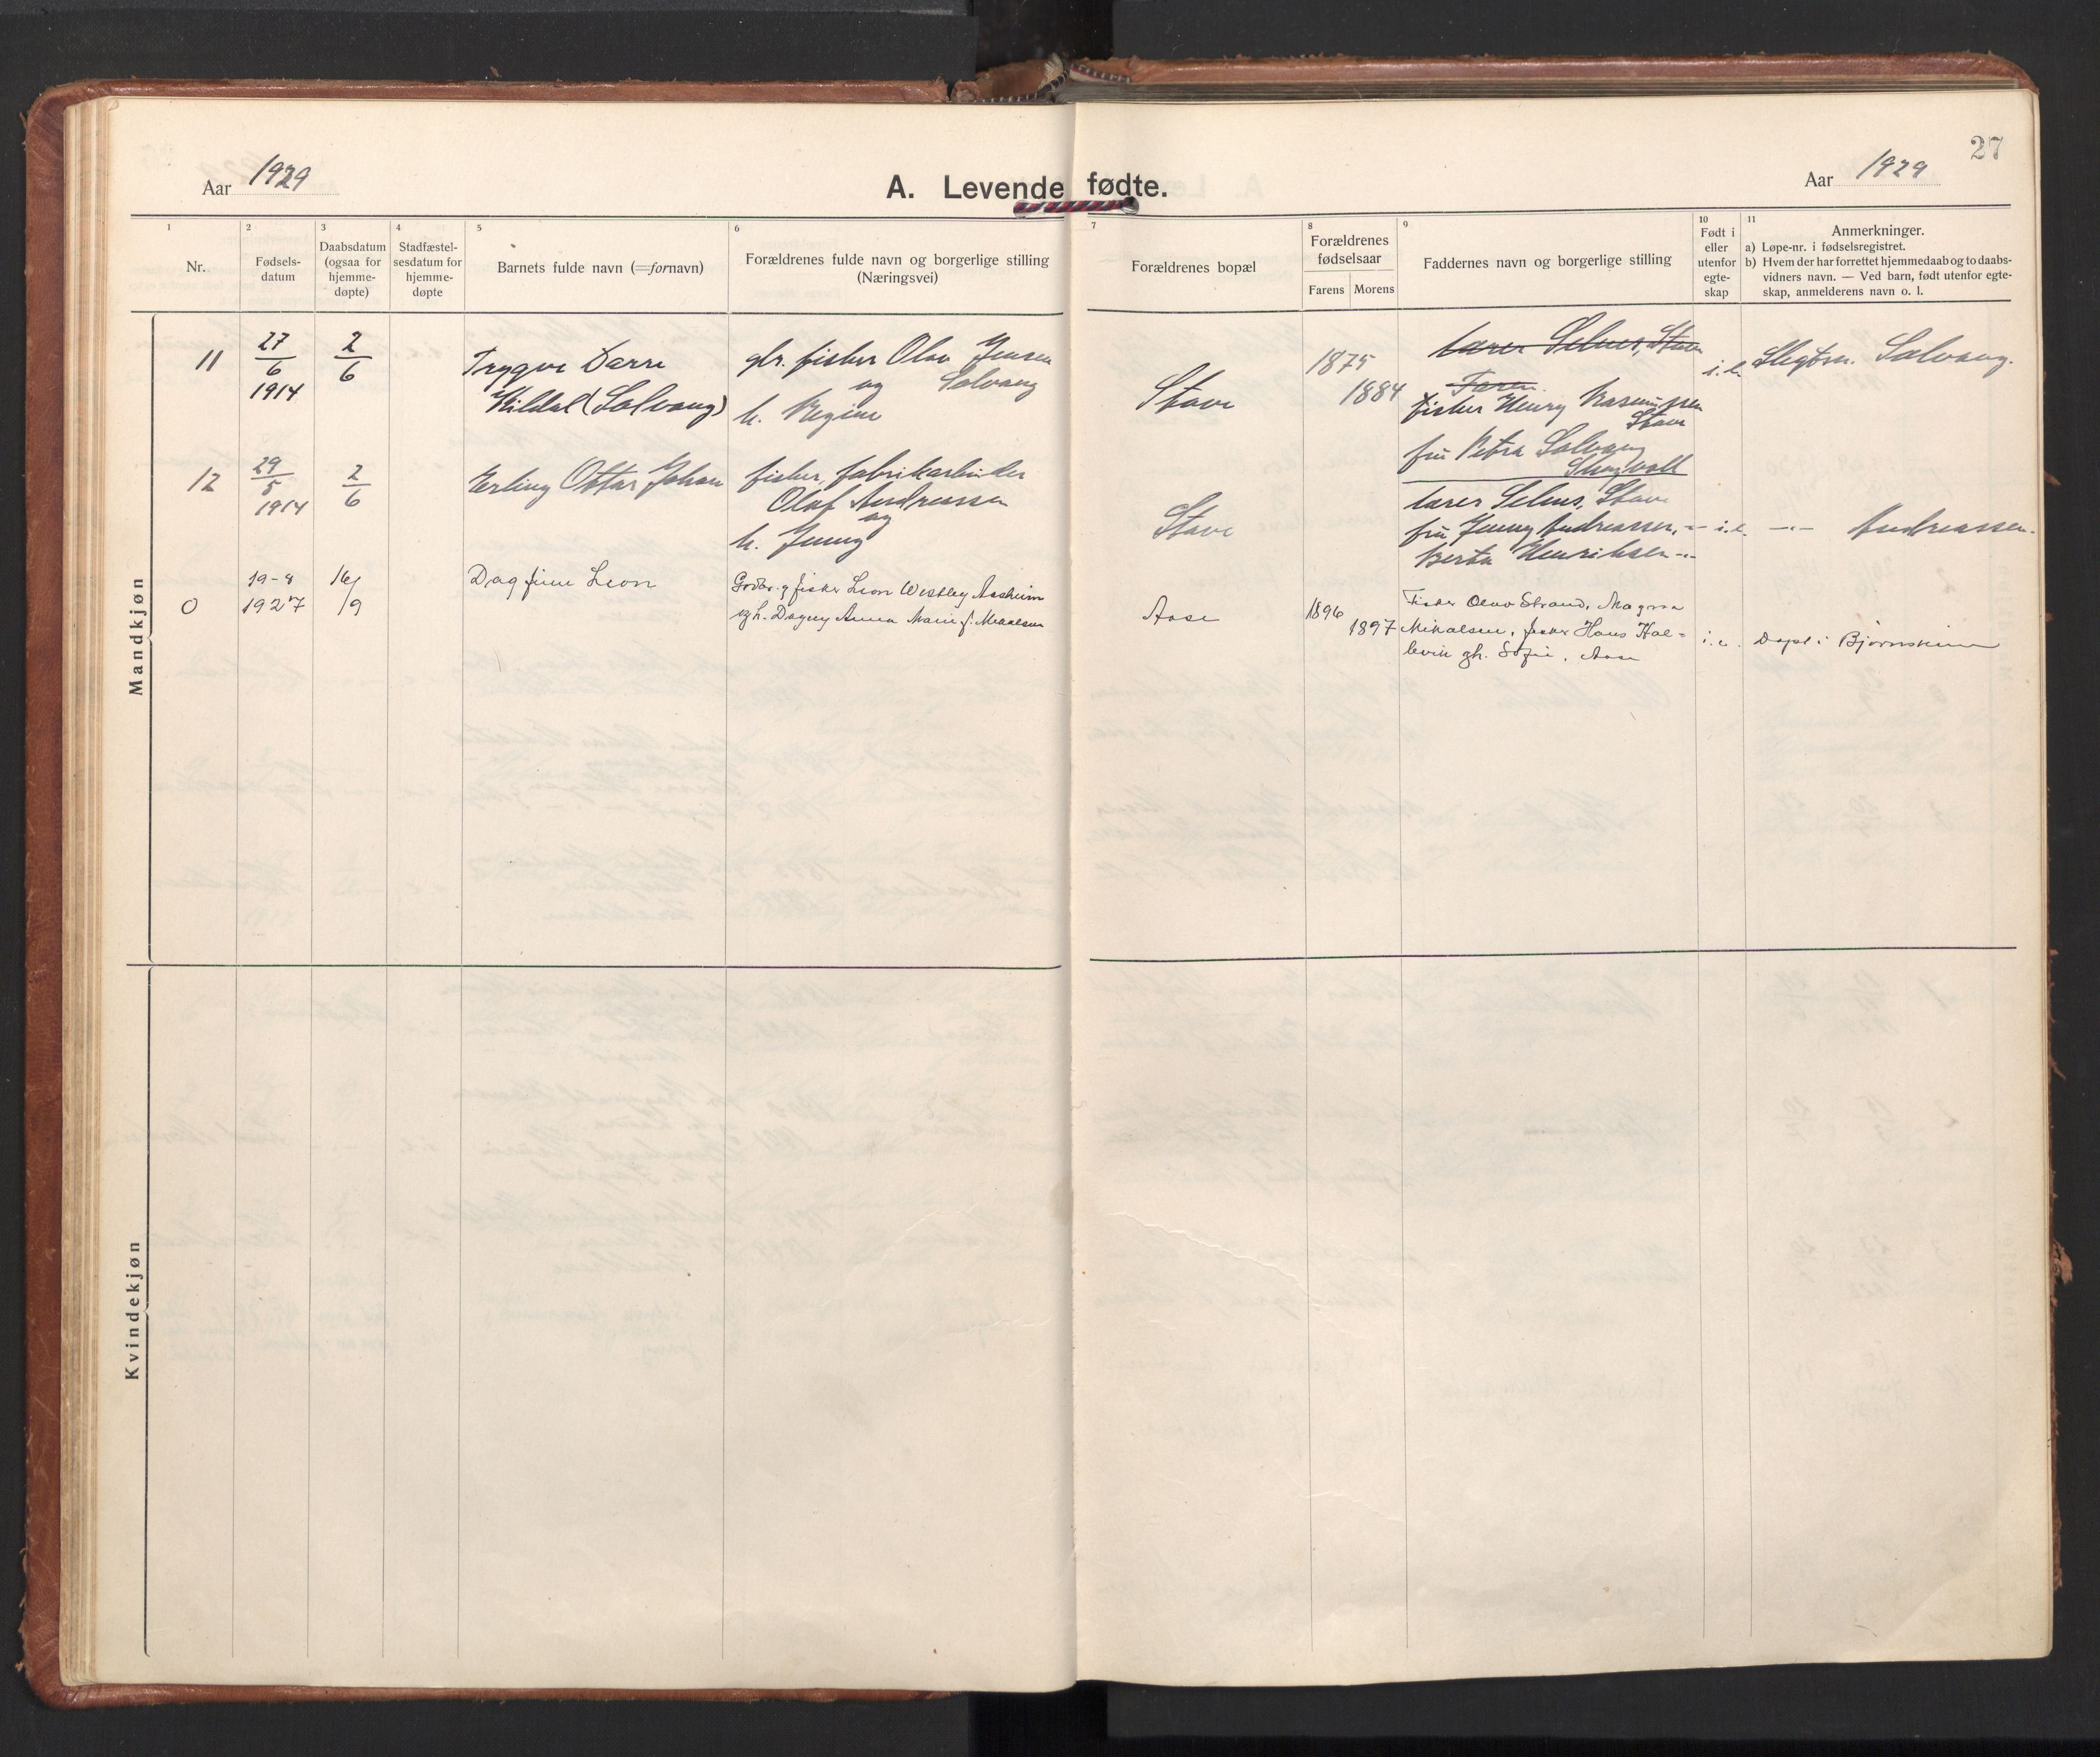 27
Aar 1929
A. Levende fødte.
Aar 1929
1
2
3
4
5
6
7
8
9
10
11
Nr.
Fødsels-
datum
Daabsdatum
(ogsaa for
hjemme-
døpte)
Stadfæstel-
sesdatum for
hjemme-
døpte
Barnets fulde navn (=fornavn)
Forældrenes fulde navn og borgerlige stilling
(Næringsvei)
Forældrenes bopæl
Forældrenes
fødselsaar
Farens
Morens
Faddernes navn og borgerlige stilling
Født i
eller
utenfor
egte-
skap
Anmerkninger.
a) Løpe-nr. i fødselsregistret.
b) Hvem der har forrettet hjemmedaab og to daabs-
vidners navn. — Ved barn, født utenfor egte-
skap, anmelderens navn o. l.
Mandkjøn
11
27
6
1914
2
6
Trygve Darre
Kildal (Solvang)
gbr. fisker Olav Jensen
og Solvang
h. Regine
Stave
1875
1884
lærer Selnes, Stave
Faren
fisker Henry Rasmussen
Stave
fru Petra Solvang
i. e.
Slegtsn. Solvang.
12
29
5
1914
2
6
Erling Ottar Johan
fisker, fabrikarbeider
Olaf Andreassen
og
h. Jenny
Stave
lærer Selnes, Stave
fru Jenny Andreassen, -"-
Berta Henriksen -"-
i. e.
-"- Andreassen.
0
19-8
1927
/9
Dagfinn Leon
Grdbr. og fisker Leon Westley Aasheim
og h. Dagny Anna Marie f. Mikalsen
Aase
1896
1897
Fisker Olav Strand, Magna
Mikalsen, fisker Hans Hal=
levik og h. Sofie, Aase
i. e.
Døpt i Bjørnskinn
Kvindekjøn